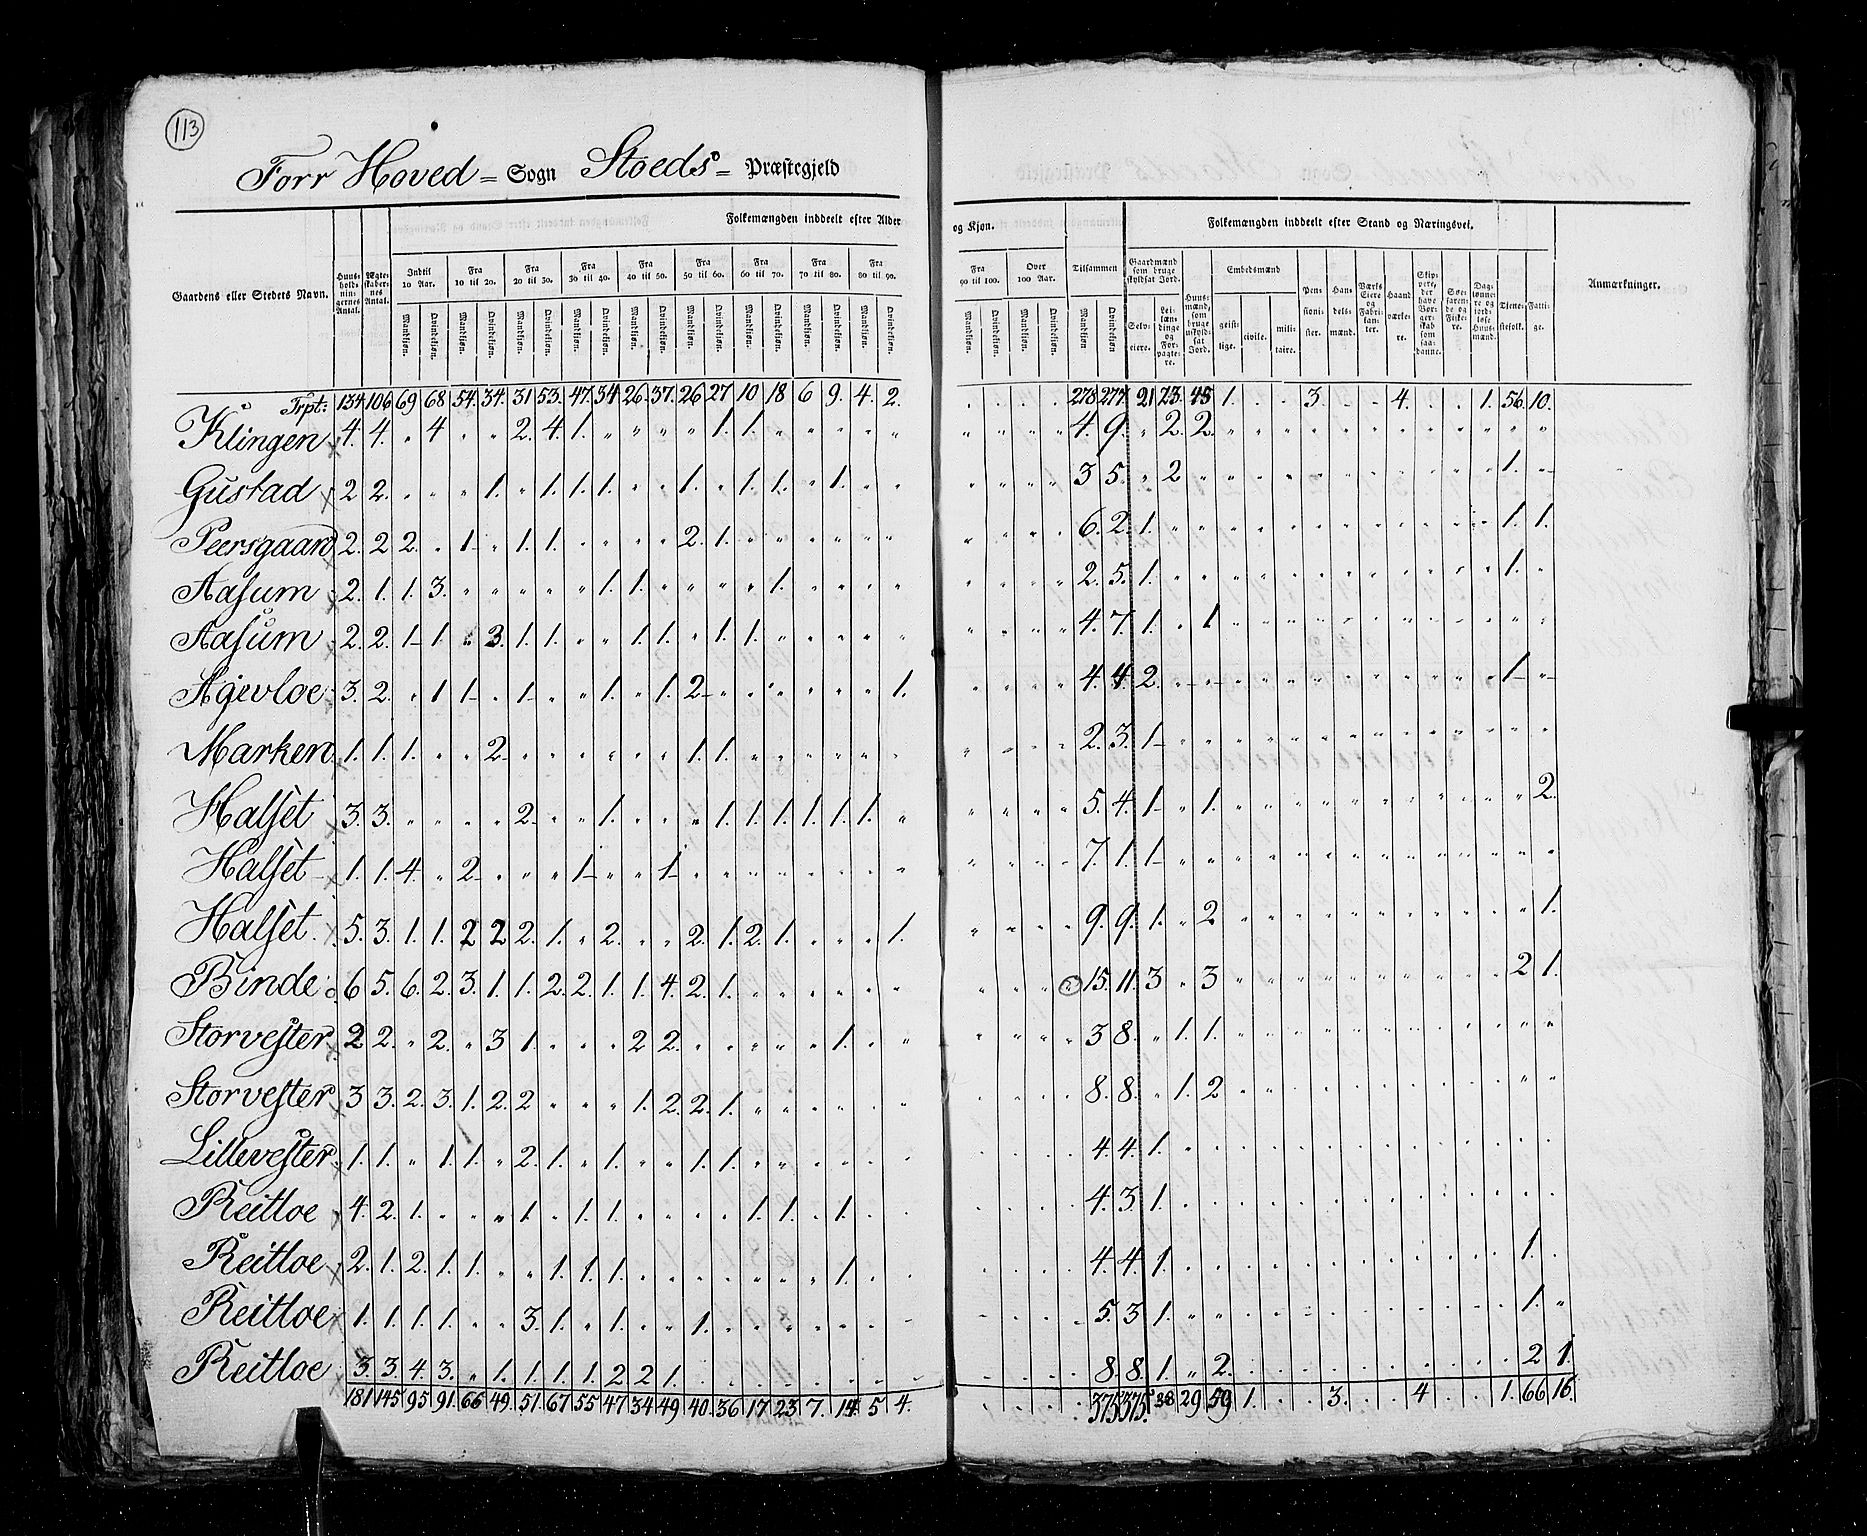 113
Forr Hoved = Sogn Stoeds = Præstegjeld
Folkemængden inddeelt efter Alder og Kjøn.
Folkemængden inddeelt efter Stand og Næringsvei.
Gaardens eller Stedets Navn. Huusholdningernes Antal. Ægteskabernes Antal. Indtil 10 Aar. Fra 10 til 20. Fra 20 til 30. Fra 30 til 40. Fra 40 til 50. Fra 50 til 60. Fra 60 til 70. Fra 70 til 80. Fra 80 til 90. Fra 90 til 100. Over 100 Aar. Tilsammen Gaardmænd som bruge skyldsat Jord. Huusmænd, som bruge uskyldsat Jord. Embedsmænd Pensionister. Handelsmænd. Værks Eiere og Fabrikanter. Haandværkere. Skippere, der have Borgerskab som saadanne. Søefarende og Fiskere. Daglønnere og jordløse Huusmænd. Tjenestefolk. Fattige. Anmærkninger.
Mandkjøn. Qvindekjøn. Mandkjøn. Qvindekjøn. Mandkjøn. Qvindekjøn. Mandkjøn. Qvindekjøn. Mandkjøn. Qvindekjøn. Mandkjøn. Qvindekjøn. Mandkjøn. Qvindekjøn. Mandkjøn. Qvindekjøn. Mandkjøn. Qvindekjøn. Mandkjøn. Qvindekjøn. Mandkjøn. Qvindekjøn. Mandkjøn Qvindekjøn Selveiere. Leilændinge og Forpagtere. geistlige. civile. militaire.
Trpt: 134 106 69 68 54. 34. 31 53. 47. 34 26. 37. 26 27 10 18 6 9. 4. 2. 278 274 21 23. 45 1. 3. 4. 1. 56 10.
Klingen 4. 4. " 4. " " 2. 4. 1. " " " " 1. 1. " " " " " 4. 9. " 2. 2.
Gustad 2 2. " " " 1. " 1. 1. 1. " " 1. " 1. 1. " 1. " " 3 5. " 2 1. "
Peersgaard 2. 2 2. " 1. " 1. 1. " " " " 2. 1. " " " " " " 6. 2. 1. 1. 1.
Aasum 2. 1. 1. 3. " " " " " 1. 1. " " " " 1. " " " " 2. 5. 1. 1. "
Aasum 2. 2. 1. 1. " 3. 1. 1. " " 1. 1. " 1. 1. " " " " " 4. 7. 1. " 1
Agevloe 3. 2. " 1 1. " 1. " " 1. " 1. 2. " " " " " " 1. 4. 4 2. 1. "
Marken 1. 1. 1. " " 2. " " " " " " 1. 1. " " " " " " 2. 3. 1.
Halset 3. 3. " " " " 2. " " 1. " " " 1. 1. 1. 1. 1. 1. " 5. 4. 1. " 1. 2.
Halset 1. 1. 4. " 2. " " " 1. " " 1. " " " " " " " " 7. 1. 1.
Halset 5. 3. 1. 1. 2 2 2. 1. " 2. " " 2. 1. 2. 1. " " " 1. 9. 9. 1. " 2 1.
Binde 6 5. 6. 2. 3. 1. 1. 2. 2. 1. 1. 4. 2. 1. " " " " " " 15. 11. 3 " 3 2 1.
Storvester 2 2. " 2. " 3 1. " " " 2 2. " " " " " 1. " " 3 8. " 1. 1.
Storvester 3 3. 2. 3. 1. 2. 2 " " " 1. 2. 2. 1. " " " " " " 8. 8. " 1. 2
Lillevester 1. 1. " 1. 1. " 2. 1. " 1. " " 1. 1. " " " " " " 4. 4. 1.
Reitloe 4. 2. 1. " " " 1. " 1. 1. " " " " 1. 1. " 1. " " 4. 3 1.
Reitloe 2. 1. 2. 1. 1. " " 1. 1. 1. " " " " " " " 1. " " 4. 4. 1. 1.
Reitloe 1. 1. 1. 1. " " 3. 1. " 1. " " 1. " " " " " " " 5. 3 1. 1. "
Reitloe 3. 3. 4. 3. " 1. 1. 1. 1. 2 2. 1. 8 8. 1. " 2. 2 1.
181 145 95 91. 66 49. 51. 67 55 47. 34 49. 40. 36 17 23 7. 14. 5 4. 375 375. 38 29 59 1. 3. 4 1. 66 16.